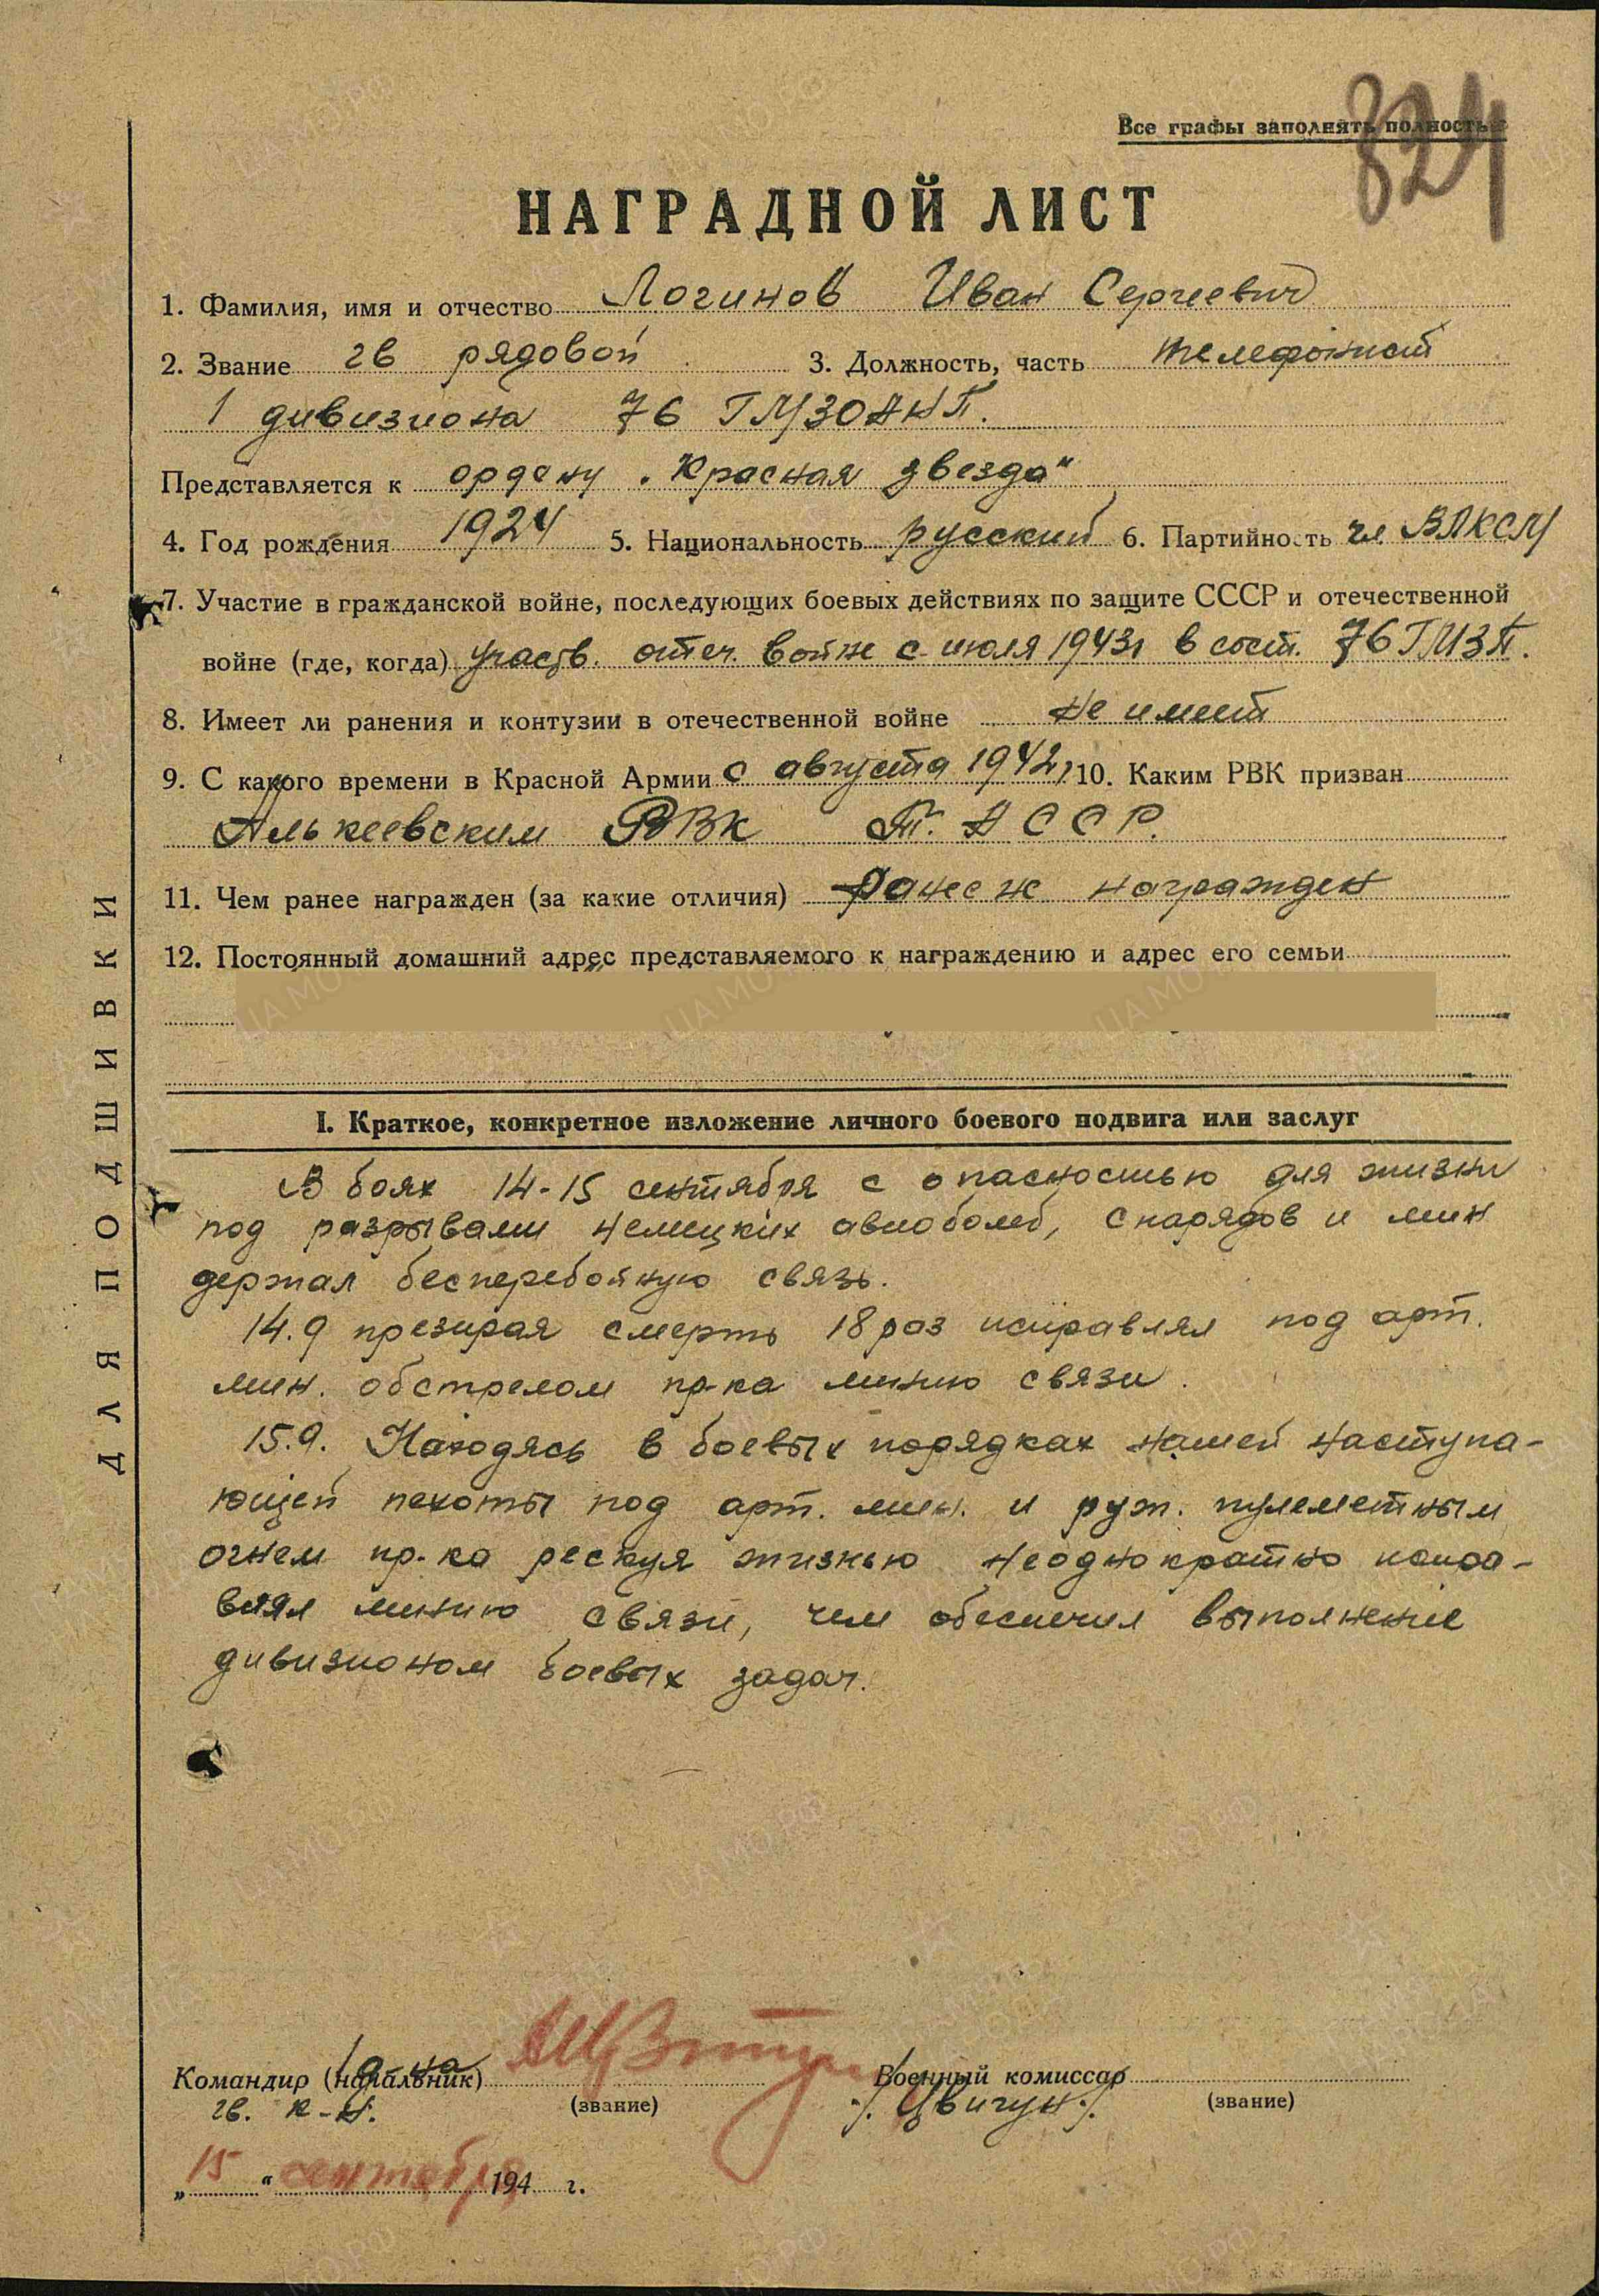 824
Все графы заполнять полностью
НАГРАДНОЙ ЛИСТ
1. Фамилия, имя и отчество Логинов Иван Сергеевич
2. Звание гв рядовой 3. Должность, часть телефонист
1 дивизиона 76 ГМЗОАНП.
Представляется к ордену „Красная звезда"
4. Год рождения 1924 5. Национальность русский 6. Партийность чл. ВЛКСМ
7. Участие в гражданской войне, последующих боевых действиях по защите СССР и отечественной
войне (где, когда) участв. отеч. войне с июля 1943г в сост. 76 ГМЗП.
8. Имеет ли ранения и контузии в отечественной войне не имеет
9. С какого времени в Красной Армии с августа 1942, 10. Каким РВК призван
Алькеевским РВК Т. АССР.
11. Чем ранее награжден (за какие отличия) ранее не награжден
12. Постоянный домашний адрес представляемого к награждению и адрес его семьи
I. Краткое, конкретное изложение личного боевого подвига или заслуг
В боях 14-15 сентября с опасностью для жизни
под разрывами немецких авиобомб, снарядов и мин
держал бесперебойную связь.
14.9 презирая смерть 18 раз исправлял под арт.
мин. обстрелом пр-ка линию связи.
15.9. Находясь в боевых порядках нашей наступа-
ющей пехоты под арт. мин. и руж. пулеметным
огнем пр-ка рескуя жизнью неоднократно испра-
влял линию связи, чем обеспечил выполнение
дивизионом боевых задач.
Командир (начальник) 1 д-на Военный комиссар
гв. к-н. (звание) /. Цвигун /. (звание)
„15" сентября 194 г.
ДЛЯ ПОДШИВКИ
ЦА МО РФ